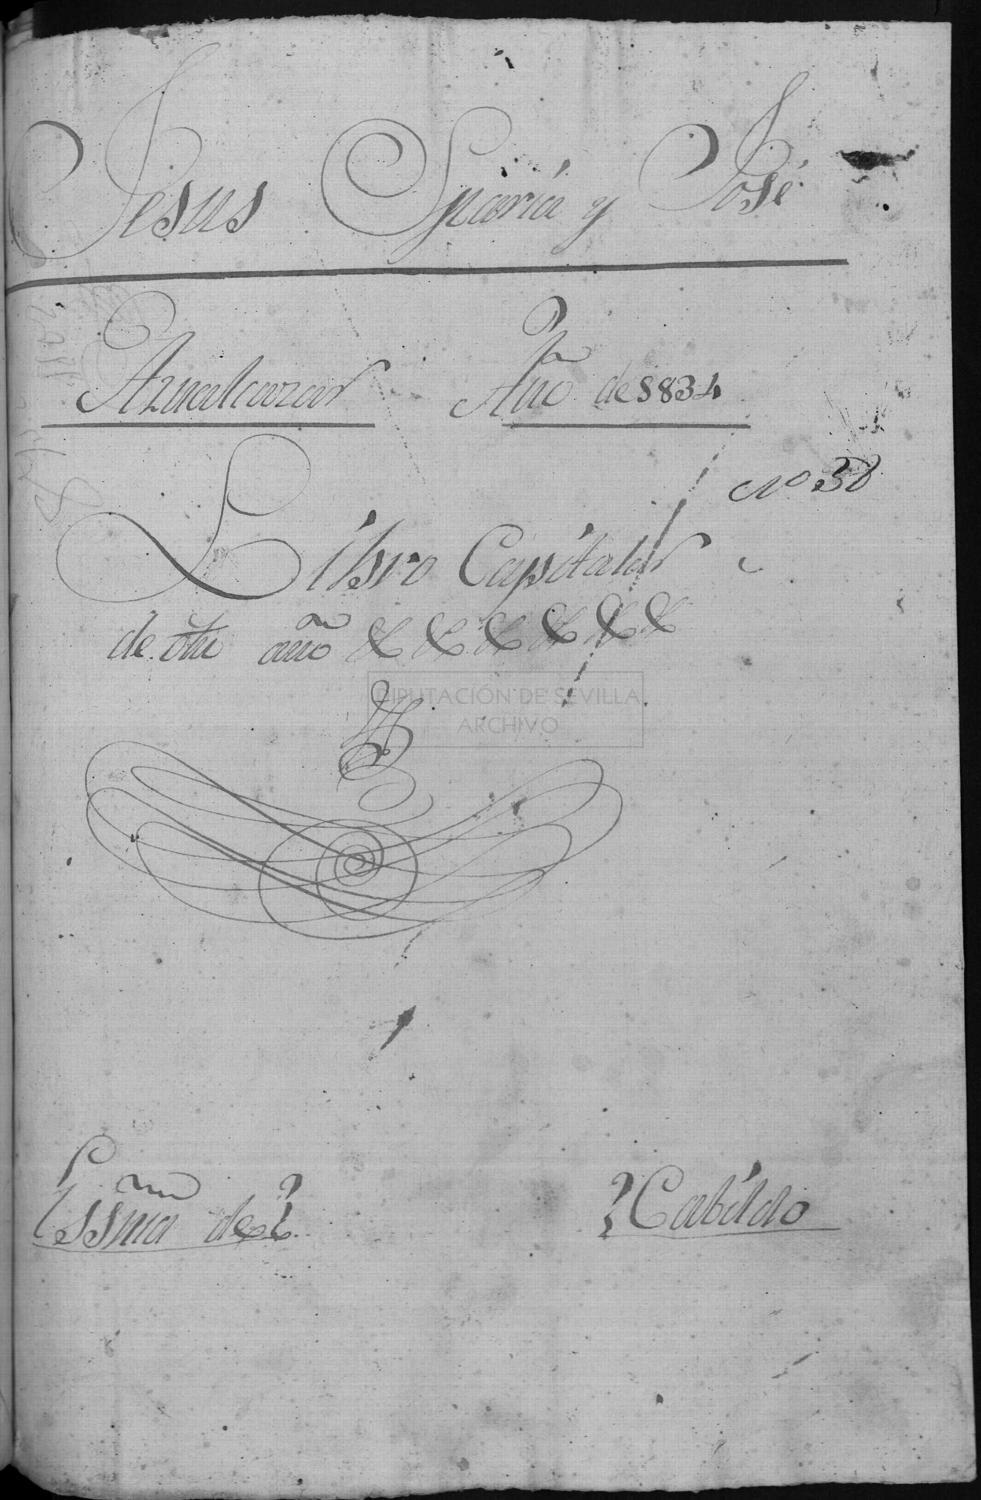 Jesus Maria y José
Aznalcazar Año de 1834
Nº 38
Libro Capitular
de dho año
DIPUTACIÓN DE SEVILLA
ARCHIVO
Essnia de Cabildo